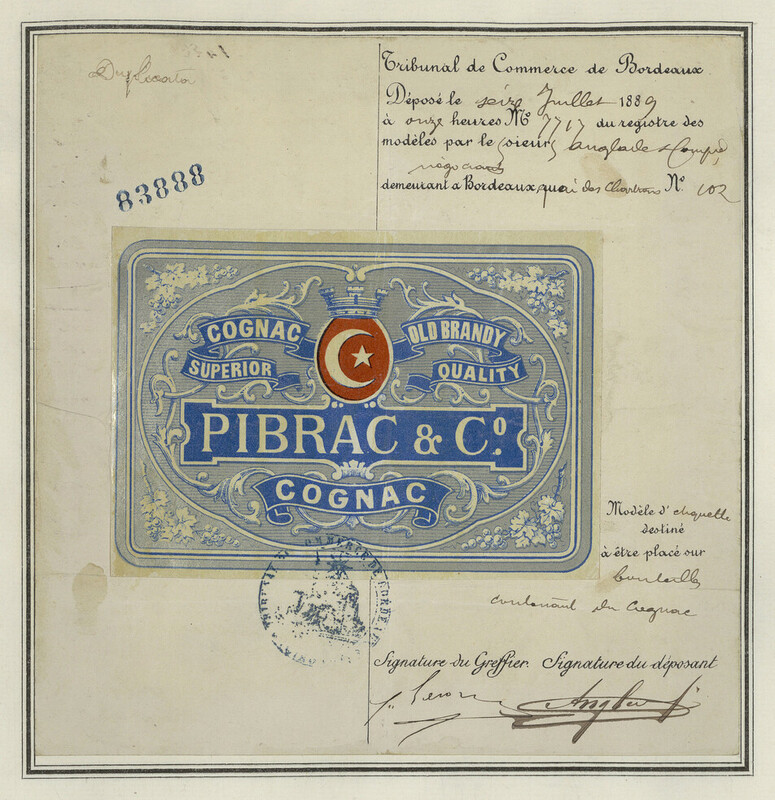 Duplicata
Tribunal de Commerce de Bordeaux
Déposé le seize Juillet 1889
à onze heures Nº 7717 du registre des
modèles par le sieur Anglade & Compie
négociants
demeurant à Bordeaux quai des Chartrons Nº 102
83888
COGNAC OLD BRANDY
SUPERIOR QUALITY
PIBRAC & Cº.
COGNAC
Modèle d'etiquette
destiné
à être placé sur
bouteilles
contenant du Cognac
TRIBUNAL DE COMMERCE DE BORDEAUX
Signature du Greffier. Signature du déposant
Anglade